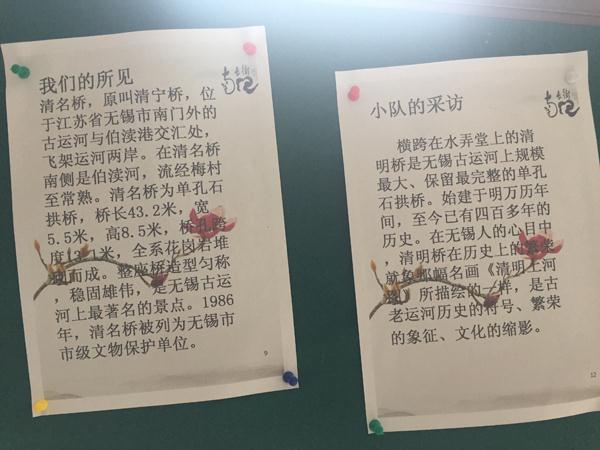 我们的所见
清名桥，原叫清宁桥，位
于江苏省无锡市南门外的
古运河与伯渎港交汇处，
飞架运河两岸。在清名桥
南侧是伯渎河，流经梅村
至常熟。清名桥为单孔石
拱桥，桥长43.2米，宽
5.5米，高8.5米，桥孔跨
度13.1米，全系花岗岩堆
而成。整座桥造型匀称
，稳固雄伟，是无锡古运
河上最著名的景点。1986
年，清名桥被列为无锡市
市级文物保护单位。
9
小队的采访
横跨在水弄堂上的清
明桥是无锡古运河上规模
最大、保留最完整的单孔
石拱桥。始建于明万历年
间，至今已有四百多年的
历史。在无锡人的心目中
，清明桥在历史上的繁荣
就象那幅名画《清明上河
图》所描绘的一样，是古
老运河历史的符号、繁荣
的象征、文化的缩影。
12